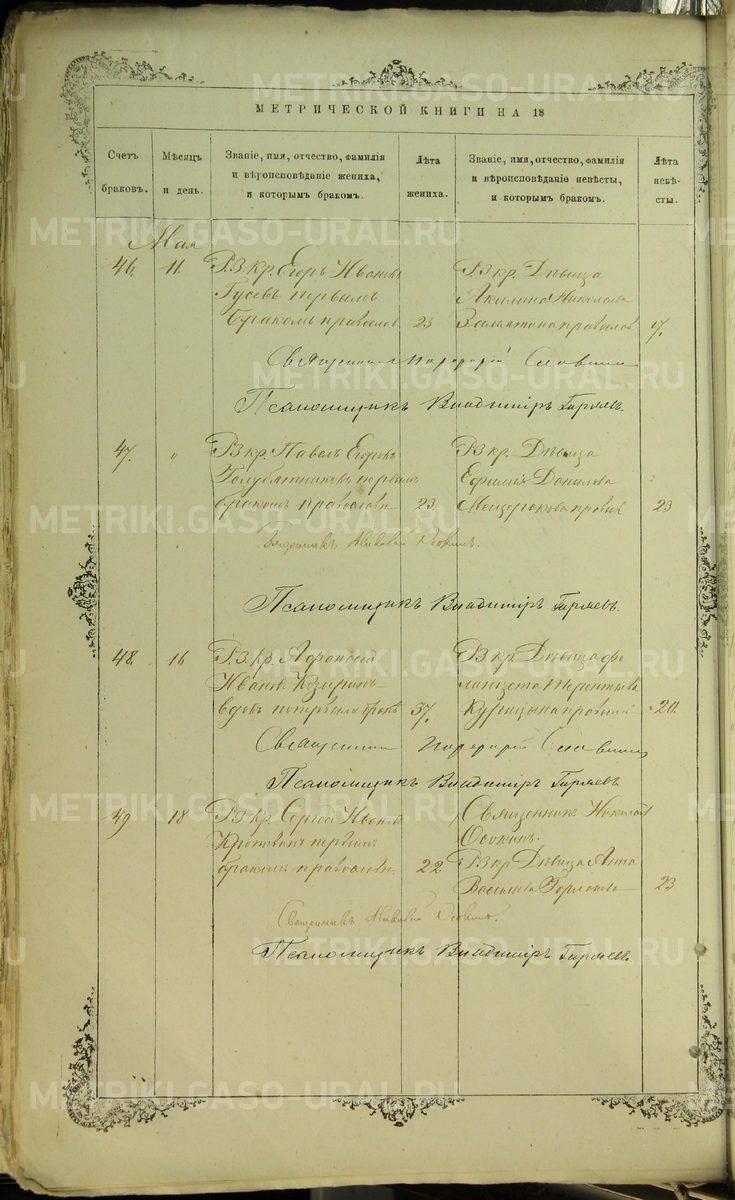 МЕТРИЧЕСКОЙ КНИГИ НА 18
Счетъ браковъ.
Мѣсяцъ и день.
Званіе, имя, отчество, фамилія и вѣроисповѣданіе жениха, и которымъ бракомъ.
Лѣта жениха.
Званіе, имя, отчество, фамилія и вѣроисповѣданіе невѣсты, и которымъ бракомъ.
Лѣта невѣсты.
Мая
46. 11. Р. З. кр. Егоръ Ивановъ
Гусевъ первымъ
бракомъ православ 23
Р З кр. Дѣвица
Акилина Николаева
православ 17.
Священникъ Порфирій Славнинъ
Псаломщикъ Владиміръ Гиряевъ.
47. " Р З кр. Павелъ Егоровъ
Голубятниковъ первымъ
бракомъ православн 23.
Р З кр. Дѣвица
Ефимія Данилова
Мещерякова правос 23
Священникъ Николай Осокинъ.
Псаломщикъ Владиміръ Гиряевъ.
48. 16 Р. З. кр. Афанасій
Ивановъ Козыринъ
вдовъ 37.
Р З кр. Дѣвица
Терентьева
Курицына 20.
Священникъ Порфирій Славнинъ
Псаломщикъ Владиміръ Гиряевъ
49 18 Р З кр. Сергѣй Ивановъ
первымъ
бракомъ православн. 22
Священникъ Николай
Осокинъ.
Р З кр Дѣвица Анна
Васильева 23
Священникъ Николай Осокинъ.
Псаломщикъ Владиміръ Гиряевъ.
METRIKI.GASO-URAL.RU